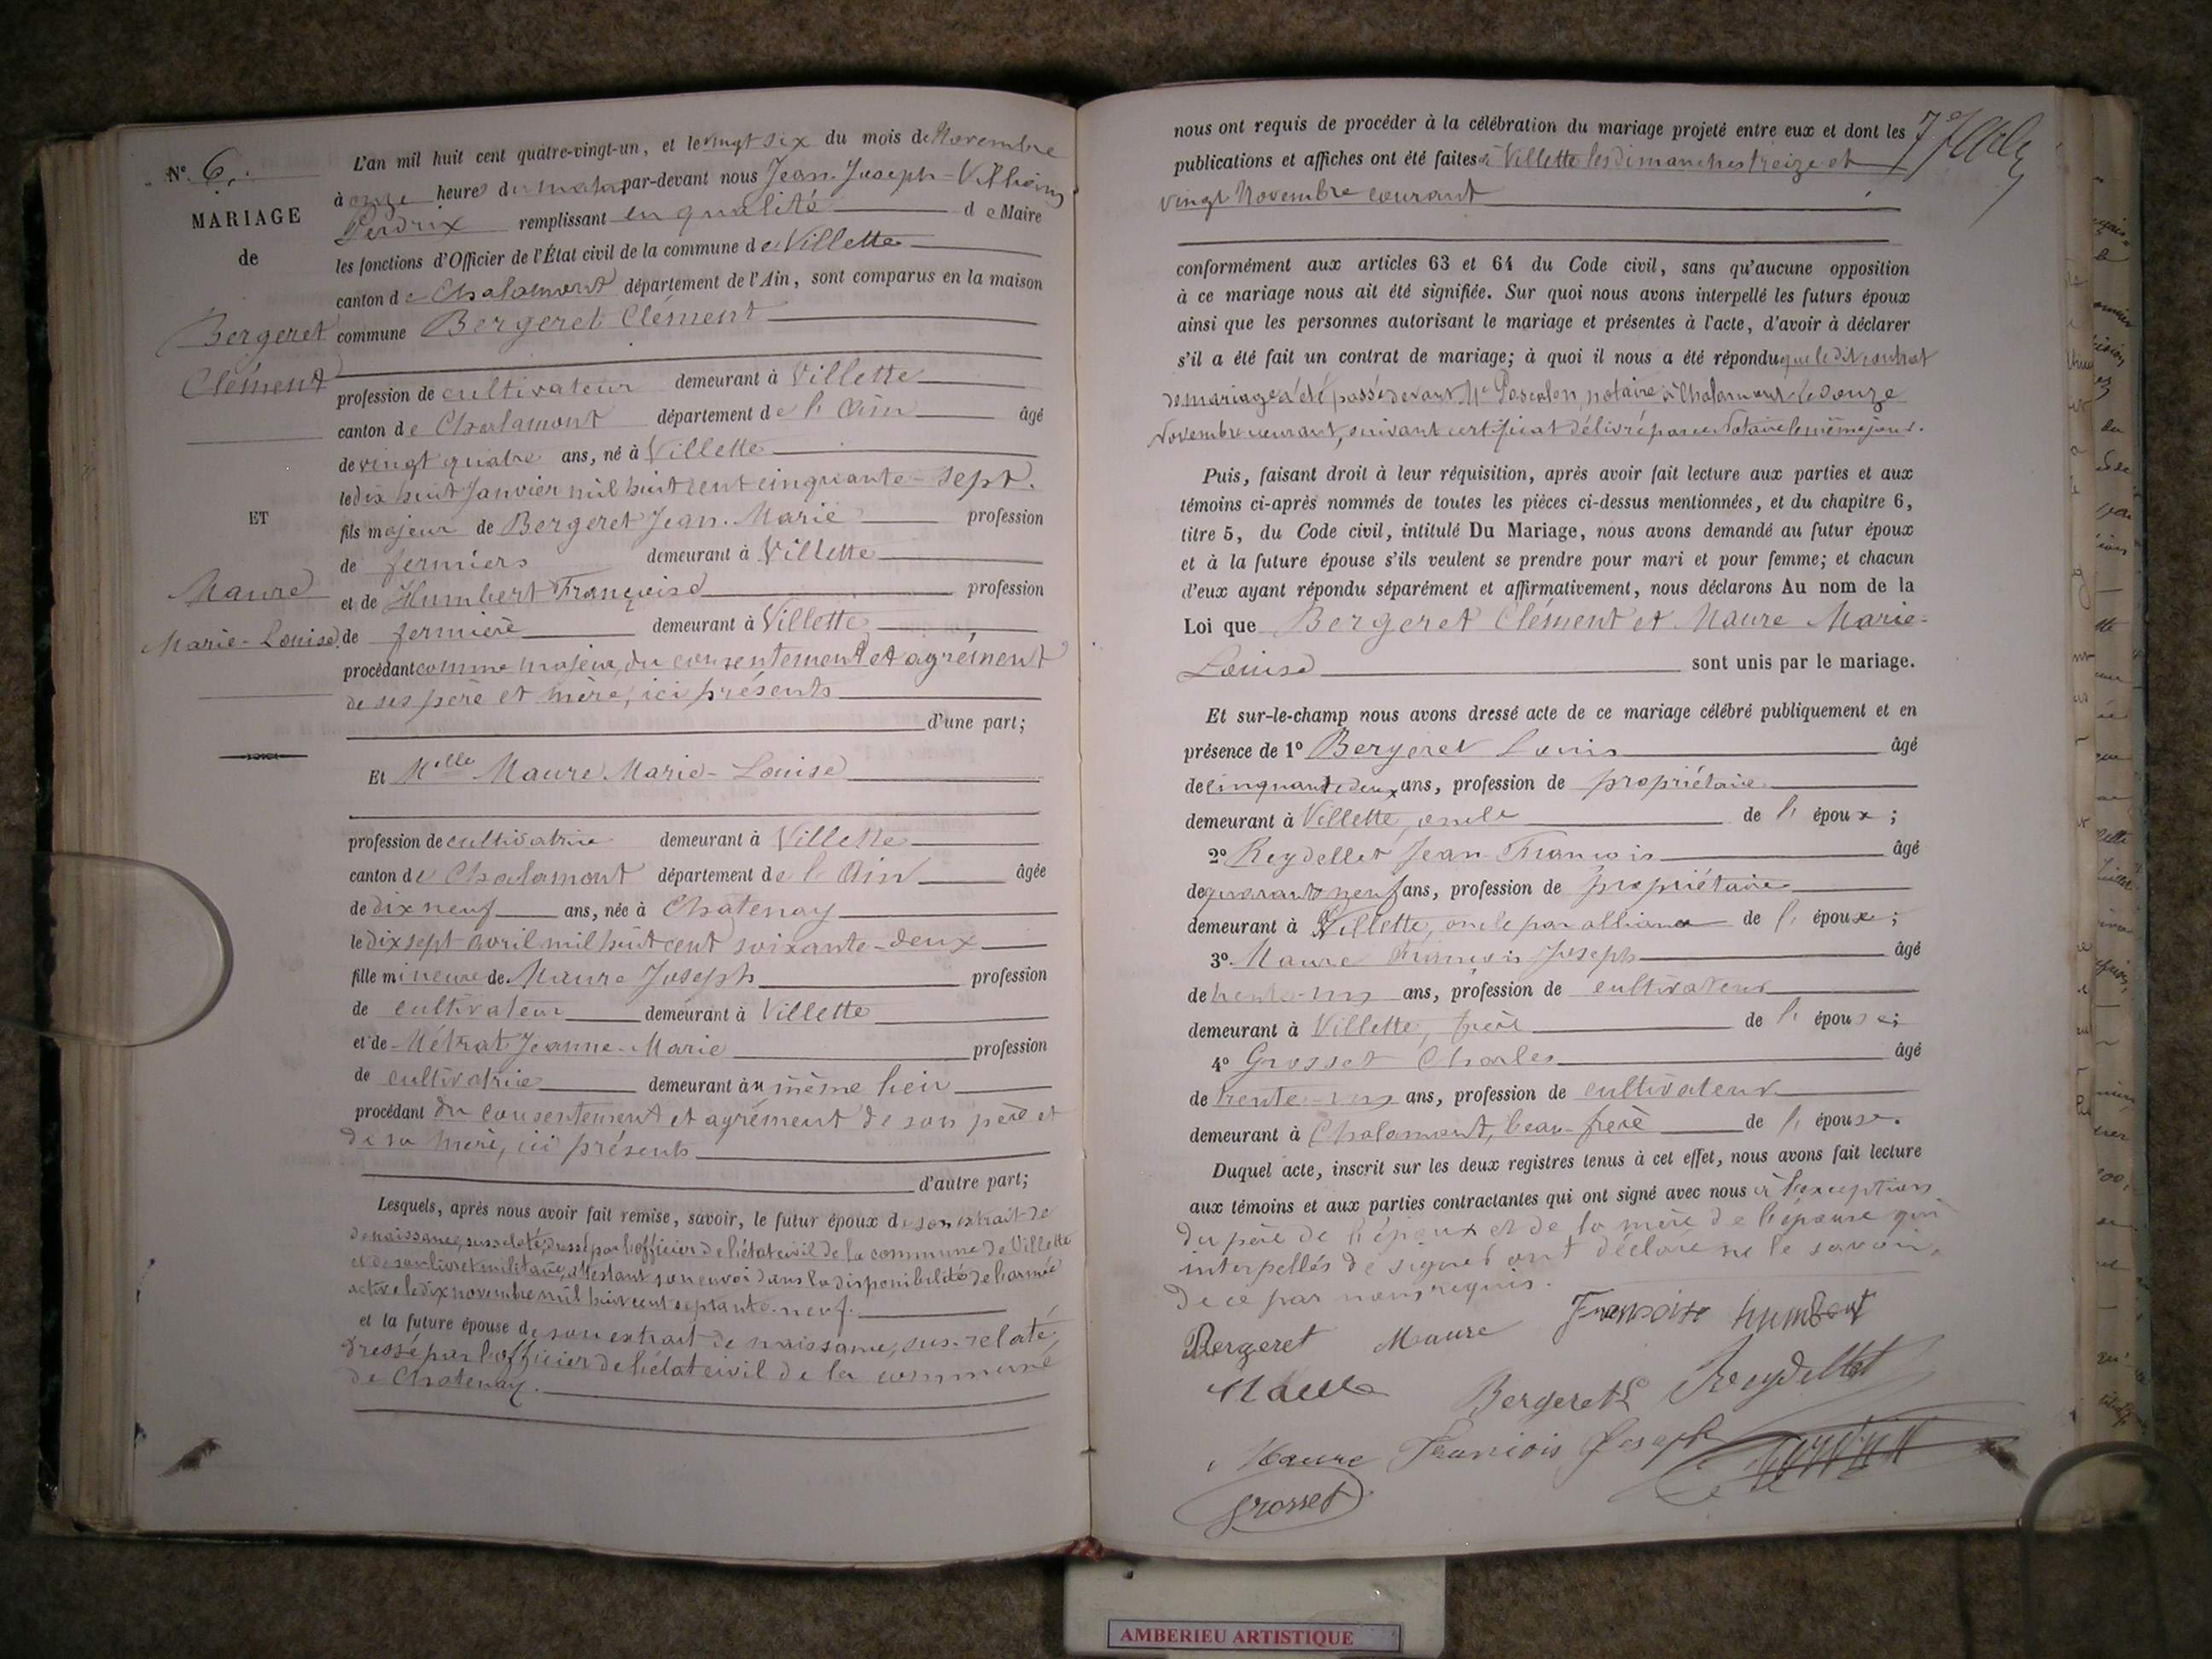 N° 6.
MARIAGE
de
Bergeret
Clément
ET
Maure
Marie-Louise
L'an mil huit cent quatre-vingt-un, et le vingt six du mois de Novembre
à onze heures du matin par-devant nous Jean-Joseph-
Perdrix remplissant en qualité de Maire
les fonctions d'Officier de l'État civil de la commune de Villette
canton de Chalamont département de l'Ain, sont comparus en la maison
commune Bergeret Clément
profession de cultivateur demeurant à Villette
canton de Chalamont département de l'Ain âgé
de vingt quatre ans, né à Villette
le dix huit Janvier mil huit cent cinquante-sept.
fils majeur de Bergeret Jean-Marie profession
de fermiers demeurant à Villette
et de Humbert Françoise profession
de fermière demeurant à Villette
procédant comme majeur, du consentement et agrément
de ses père et mère, ici présents
d'une part;
Et Melle Maure Marie-Louise
profession de cultivatrice demeurant à Villette
canton de Chalamont département de l'Ain âgée
de dix neuf ans, née à Châtenay
le dix sept avril mil huit cent soixante-deux
fille mineure de Maure Joseph profession
de cultivateur demeurant à Villette
et de Métrat Jeanne-Marie profession
de cultivatrice demeurant au même lieu
procédant du consentement et agrément de son père et
de sa mère, ici présents
d'autre part;
Lesquels, après nous avoir fait remise, savoir, le futur époux de son extrait de
de naissance, susrelaté, dressé par l'officier de l'état civil de la commune de Villette
et de son livret militaire, attestant son envoi dans la disponibilité de l'armée
active le dix novembre mil huit cent septante-neuf.
et la future épouse de son extrait de naissance, sus-relaté,
dressé par l'officier de l'état civil de la commune
de Chatenay.
nous ont requis de procéder à la célébration du mariage projeté entre eux et dont les
publications et affiches ont été faites à Villette les dimanches treize et
vingt Novembre courant
conformément aux articles 63 et 64 du Code civil, sans qu'aucune opposition
à ce mariage nous ait été signifiée. Sur quoi nous avons interpellé les futurs époux
ainsi que les personnes autorisant le mariage et présentes à l'acte, d'avoir à déclarer
s'il a été fait un contrat de mariage; à quoi il nous a été répondu que le dit contrat
de mariage a été passé devant Me notaire à Chalamont le douze
Novembre courant, suivant certificat délivré par ce Notaire le même jour.
Puis, faisant droit à leur réquisition, après avoir fait lecture aux parties et aux
témoins ci-après nommés de toutes les pièces ci-dessus mentionnées, et du chapitre 6,
titre 5, du Code civil, intitulé Du Mariage, nous avons demandé au futur époux
et à la future épouse s'ils veulent se prendre pour mari et pour femme; et chacun
d'eux ayant répondu séparément et affirmativement, nous déclarons Au nom de la
Loi que Bergeret Clément et Maure Marie-
Louise sont unis par le mariage.
Et sur-le-champ nous avons dressé acte de ce mariage célébré publiquement et en
présence de 1° Bergeret Louis âgé
de cinquante deux ans, profession de propriétaire
demeurant à Villette, oncle de l'époux;
2° Reydellet Jean François âgé
de quarante neuf ans, profession de propriétaire
demeurant à Villette, oncle par alliance de l'époux;
3° Maure François Joseph âgé
de trente-un ans, profession de cultivateur
demeurant à Villette, frère de l'épouse;
4° Grosset Charles âgé
de trente-un ans, profession de cultivateur
demeurant à Chalamont, beau-frère de l'épouse.
Duquel acte, inscrit sur les deux registres tenus à cet effet, nous avons fait lecture
aux témoins et aux parties contractantes qui ont signé avec nous à l'exception
du père de l'époux et de la mère de l'épouse qui
interpellés de signer ont déclaré ne le savoir,
de ce par nous requis.
Bergeret Maure Françoise humbert
Maure Bergeret L Reydellet
Maure François Joseph
Grosset
AMBERIEU ARTISTIQUE